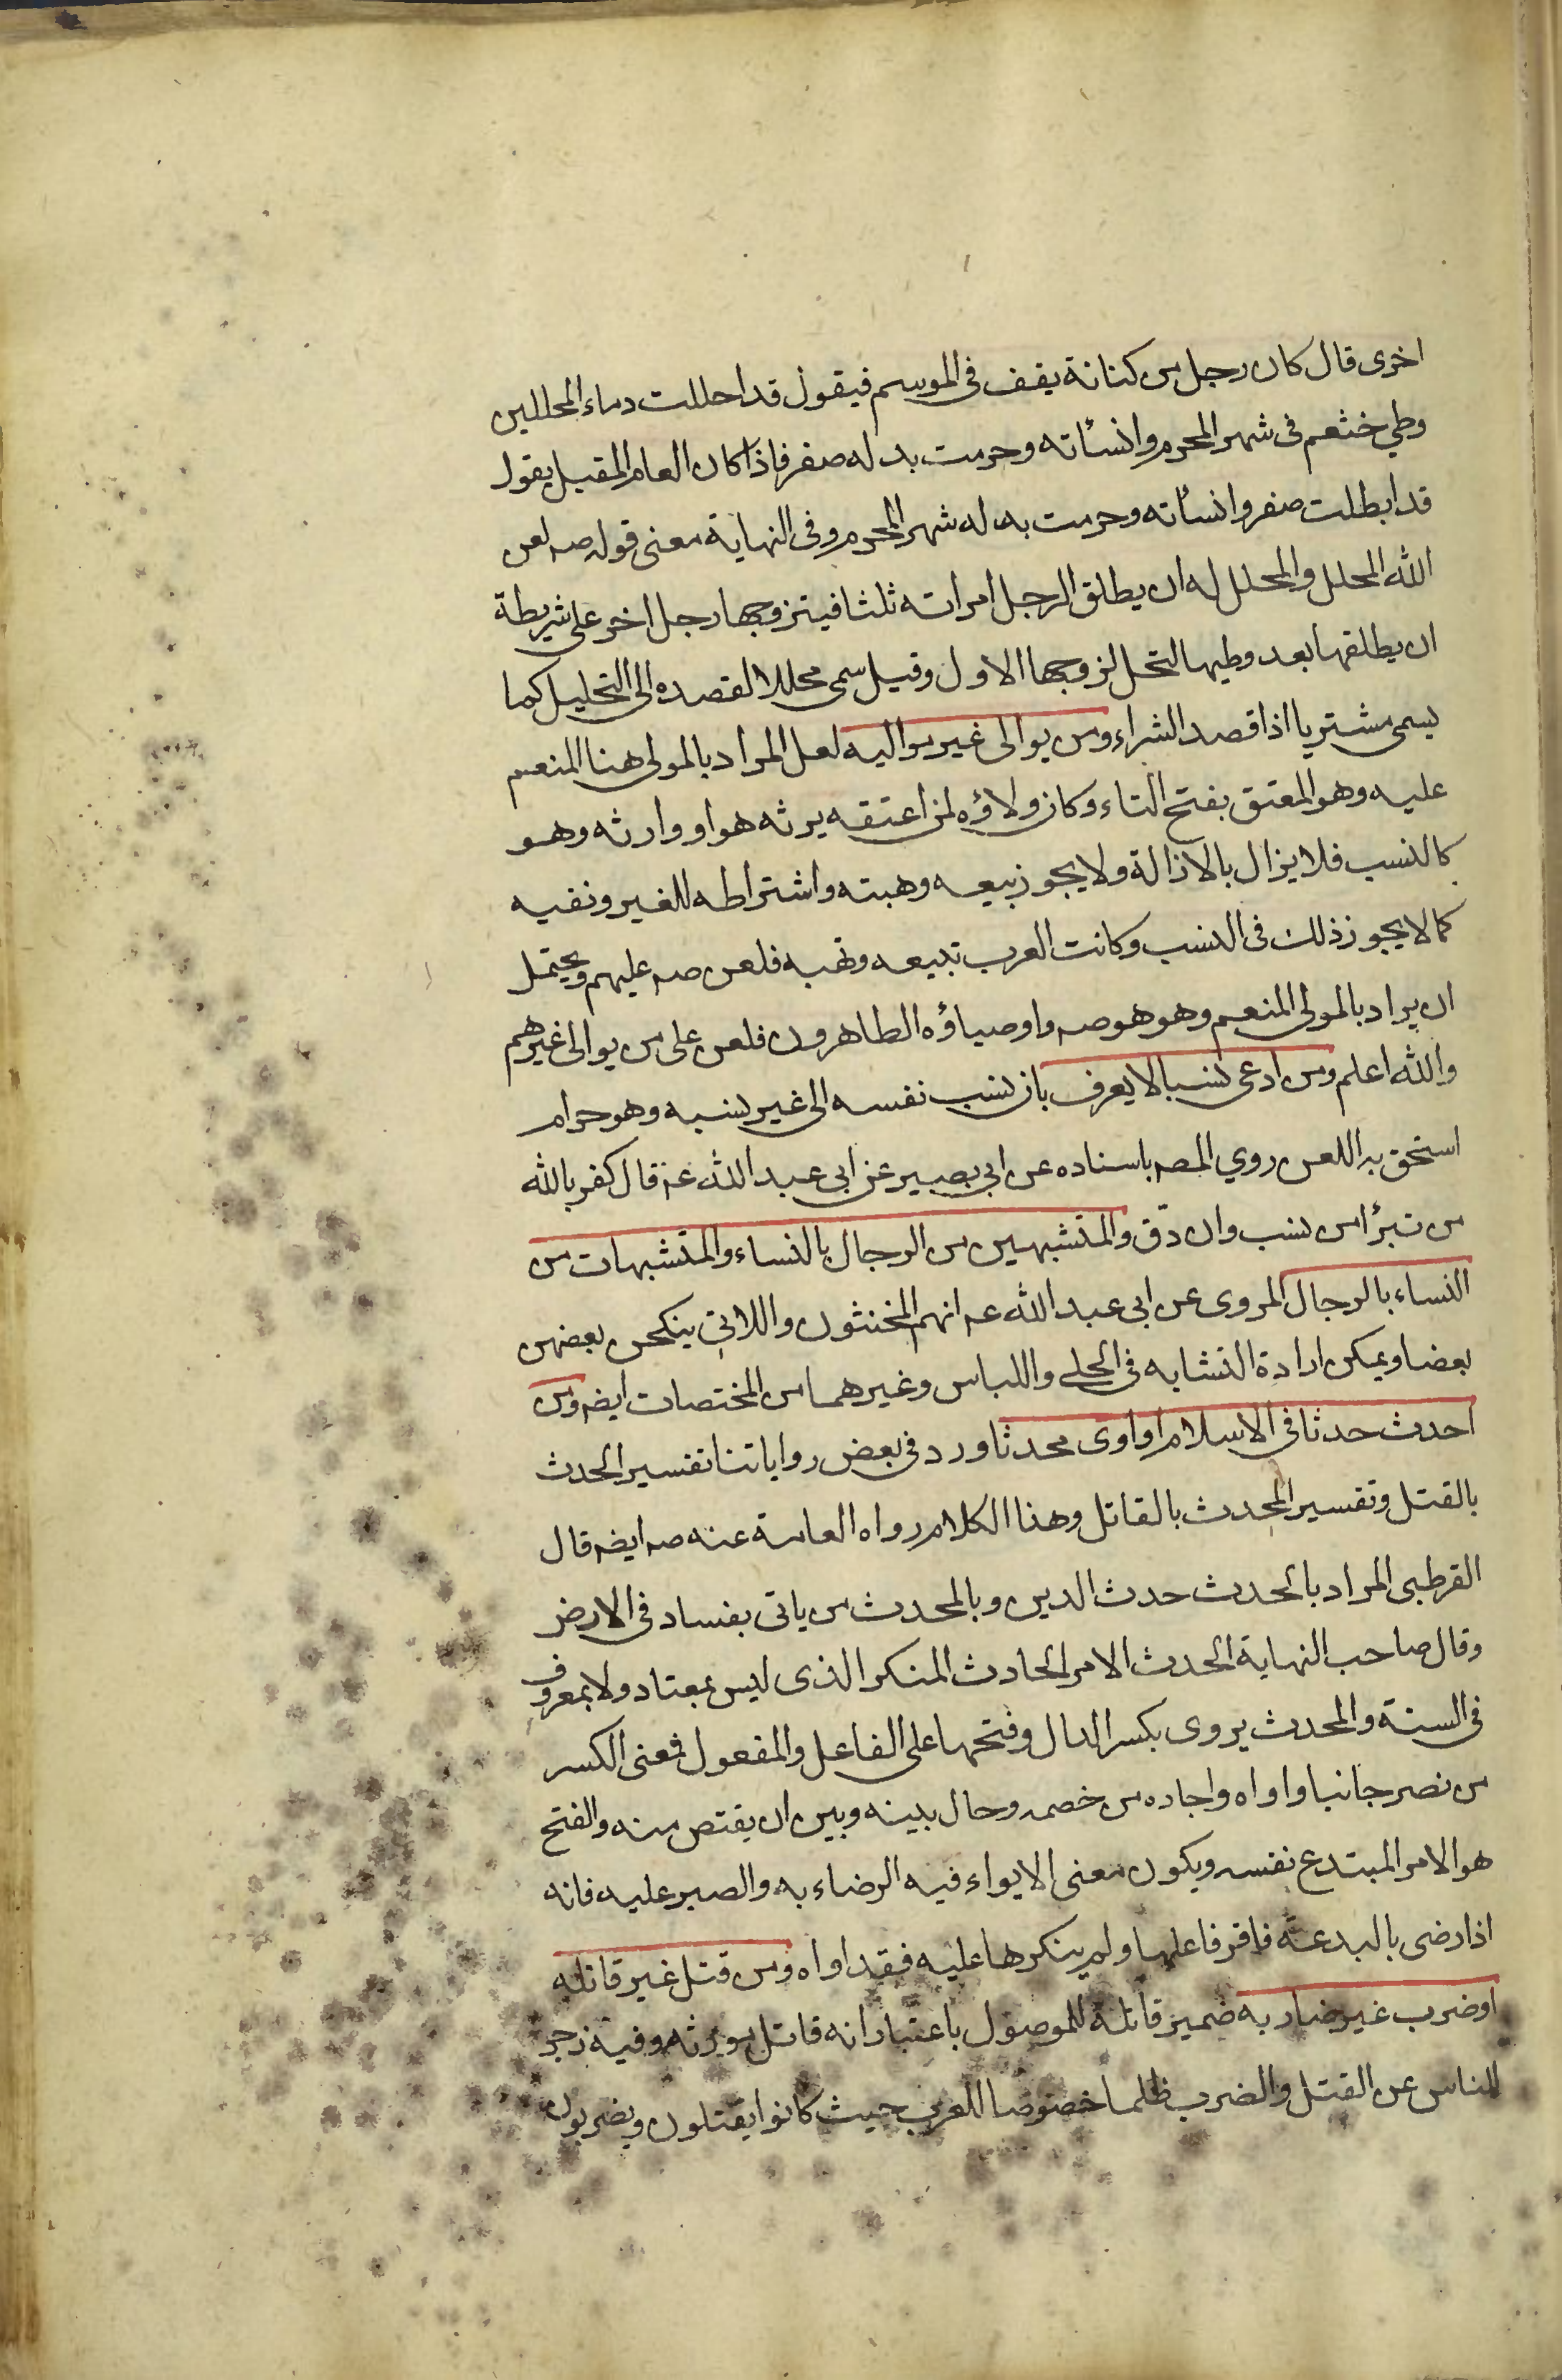 اخرى قال كان رجل من كنانة يقف فى الموسم فيقول قد احللت دماء المحللين
وطي خثعم فى شهر المحرم وانسأته وحرمت بدله صفر فاذا كان العام المقبل يقول
قد ابطلت صفر وانسأته وحرمت بدله شهر المحرم وفى النهاية معنى قوله صه لعن
الله المحلل والمحلل له ان يطلق الرجل امراته ثلثا فيتزوجها رجل اخر على شريطة
ان يطلقها بعد وطيها لتحل لزوجها الاول وقيل سمى محللا لقصده الى التحليل كما
يسمى مشتريا اذا قصد الشراء ومن يوالى غير مواليه لعل المراد بالمولى هنا المنعم
عليه وهو المعتق بفتح التاء وكان ولاؤه لمن اعتقه يرثه هو او وارثه وهو
كالنسب فلا يزال بالازالة ولا يجوز بيعه وهبته واشتراطه للغير ونفيه
كما لا يجوز ذلك فى النسب وكانت العرب تبيعه وتهبه فلعن صه عليهم ويحتمل
ان يراد بالمولى المنعم وهو هو صه واوصياؤه الطاهرون فلعن على من يوالى غيرهم
والله اعلم ومن ادعى نسبا لا يعرف بان نسب نفسه الى غير نسبه وهو حرام
استحق به اللعن روي المصه باسناده عن ابي بصير عن ابى عبد الله عه قال كفر بالله
من تبرأ من نسب وان دق والمتشبهين من الرجال بالنساء والمتشبهات من
النساء بالرجال المروى عن ابى عبد الله عه انهم المخنثون واللاتي ينكحن بعضهن
بعضا ويمكن ارادة التشابه فى الحلي واللباس وغيرهما من المختصات ايضه ومن
احدث حدثا فى الاسلام او اوى محدثا ورد فى بعض رواياتنا تفسير الحدث
بالقتل وتفسير المحدث بالقاتل وهذا الكلام رواه العامة عنه صه ايضه قال
القرطبى المراد بالحدث حدث الدين وبالمحدث من ياتى بفساد فى الارض
وقال صاحب النهاية الحدث الامر الحادث المنكر الذى ليس بمعتاد ولا بمعروف
فى السنة والمحدث يروى بكسر الدال وفتحها على الفاعل والمفعول فمعنى الكسر
من نصر جانيا واواه واجاره من خصمه وحال بينه وبين ان يقتص منه والفتح
هو الامر المبتدع نفسه ويكون معنى الايواء فيه الرضاء به والصبر عليه فانه
اذا رضى بالبدعة فاقر فاعلها ولم ينكرها عليه فقد اواه ومن قتل غير قاتله
او ضرب غير ضاربه ضمير قاتله للموصول باعتبار انه قاتل مورثه وفيه زجر
للناس عن القتل والضرب ظلما خصوصا للعرب حيث كانوا يقتلون ويضربون